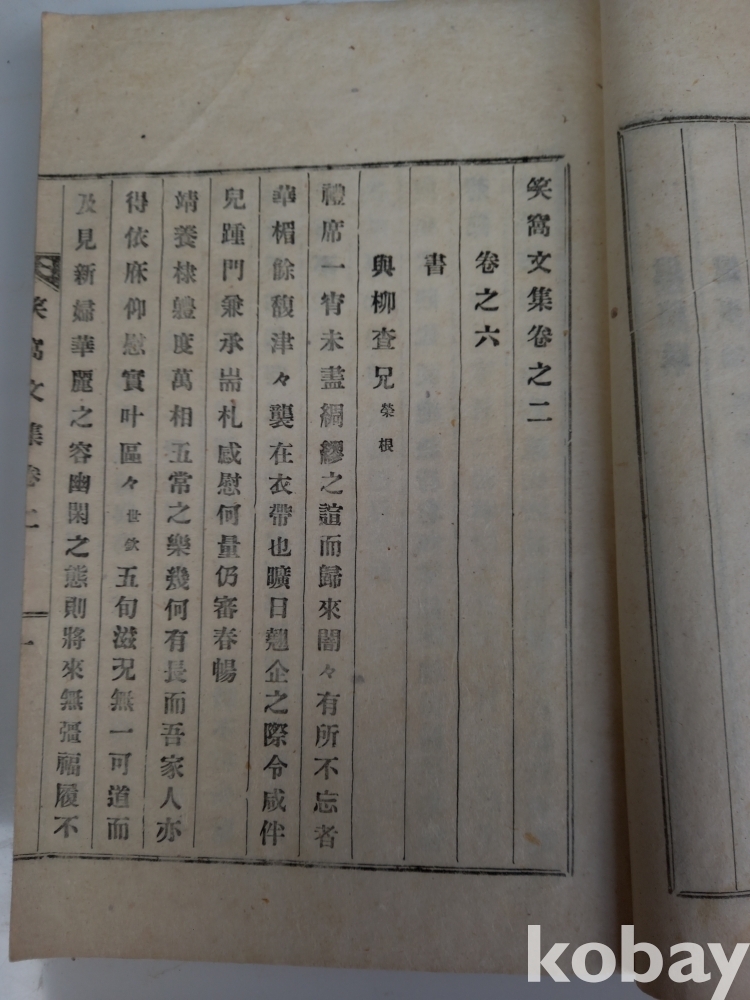 笑窩文集卷之二
卷之六
書
與柳查兄榮根
禮席一宵未盡綢繆之誼而歸來闇々有所不忘者
華楣餘馥津々襲在衣帶也曠日翹企之際令咸伴
兒踵門兼承耑札感慰何量仍審春暢
靖養棣軆度萬相五常之樂幾何有長而吾家人亦
得依庥仰慰實叶區々世欽五旬滋況無一可道而
及見新婦華麗之容幽閑之態則將來無彊福履不
笑窩文集卷二
一
kobay